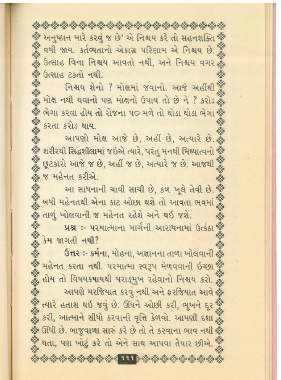 અનુષ્ઠાન મારે કરવું જ છે' એ નિશ્ચય કરે તો સહનશક્તિ
વધી જાય. કર્તવ્યતાનો એકાગ્ર પરિણામ એ નિશ્ચય છે.
ઉત્સાહ વિના નિશ્ચય આવતો નથી, અને નિશ્ચય વગર
ઉત્સાહ ટકતો નથી.
નિશ્ચય શેનો ? મોક્ષમાં જવાનો. આજે અહીંથી
મોક્ષ નથી થવાનો પણ મોક્ષનો ઉપાય તો છે ને ? કરોડ
ભેગા કરવા હોય તો રોજના ૫૦ મળે તો થોડા થોડા ભેગા
કરતા કરોડ થાય.
આપણો મોક્ષ આજે છે, અહીં છે, અત્યારે છે.
શરીરથી સિદ્ધશીલામાં જઇએ ત્યારે, પરંતુ મનથી મિથ્યાત્વનો
છૂટકારો આજે જ છે, અહીં જ છે, અત્યારે જ છે. આજથી
જ મહેનત કરીએ.
આ સાધનાની ચાવી સાચી છે, કળ ખૂલે તેવી છે.
બધી મહેનતથી એના કાટ ઓછા થશે તો આવતા ભવમાં
તાળું ખોલવાની જ મહેનત રહેશે અને થઇ જશે.
પ્રશ્ન :- પરમાત્માના માર્ગની આરાધનામાં ઉત્કંઠા
કેમ જાગતી નથી?
ઉત્તર :- કર્મના, મોહના, અજ્ઞાનના તાળા ખોલવાની
મહેનત કરતા નથી. પરમાત્મા સ્વરૂપ મેળવવાની ઇચ્છા
હોય તો વિષયકષાયથી પરાઙ્મુખ રહેવાનો નિશ્ચય કરો.
આપણે મરજિયાત કરવું નથી અને ફરજિયાત આવે
ત્યારે હતાશ થઇ જવું છે. ઊંઘને ઓછી કરી, ભૂખને દૂર
કરી, આત્માને સીધો કરવાની વૃત્તિ કેળવો. આપણી દશા
ઊંધી છે. બાજુવાળા સારું કરે છે તો તે કરવાના ભાવ નથી
થતા, પણ ખોટું કરે તો એને સાથ આપવા તૈયાર છીએ.
૧૧૧